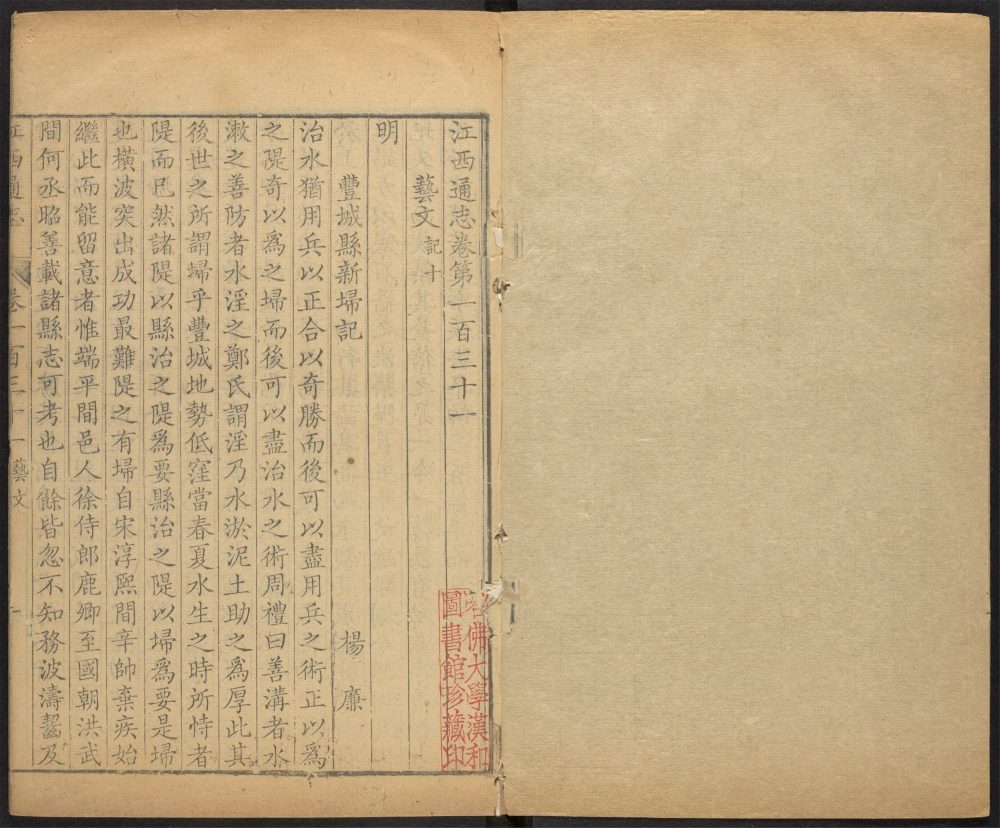 江西通志卷第一百三十一
藝文 記十
明
豐城縣新埽記 楊廉
治水猶用兵以正合以奇勝而後可以盡用兵之術正以爲
之隄奇以爲之埽而後可以盡治水之術周禮曰善溝者水
漱之善防者水淫之鄭氏謂淫乃水淤泥土助之爲厚此其
後世之所謂埽乎豐城地勢低窪當春夏水生之時所恃者
隄而已然諸隄以縣治之隄爲要縣治之隄以埽爲要是埽
也橫波突出成功最難隄之有埽自宋淳熙間辛帥棄疾始
繼此而能留意者惟端平間邑人徐侍郎鹿卿至國朝洪武
間何丞昭善載諸縣志可考也自餘皆忽不知務波濤齧及
江西通志 卷一百三十一 藝文 一
哈佛大學漢和
圖書館珍藏印